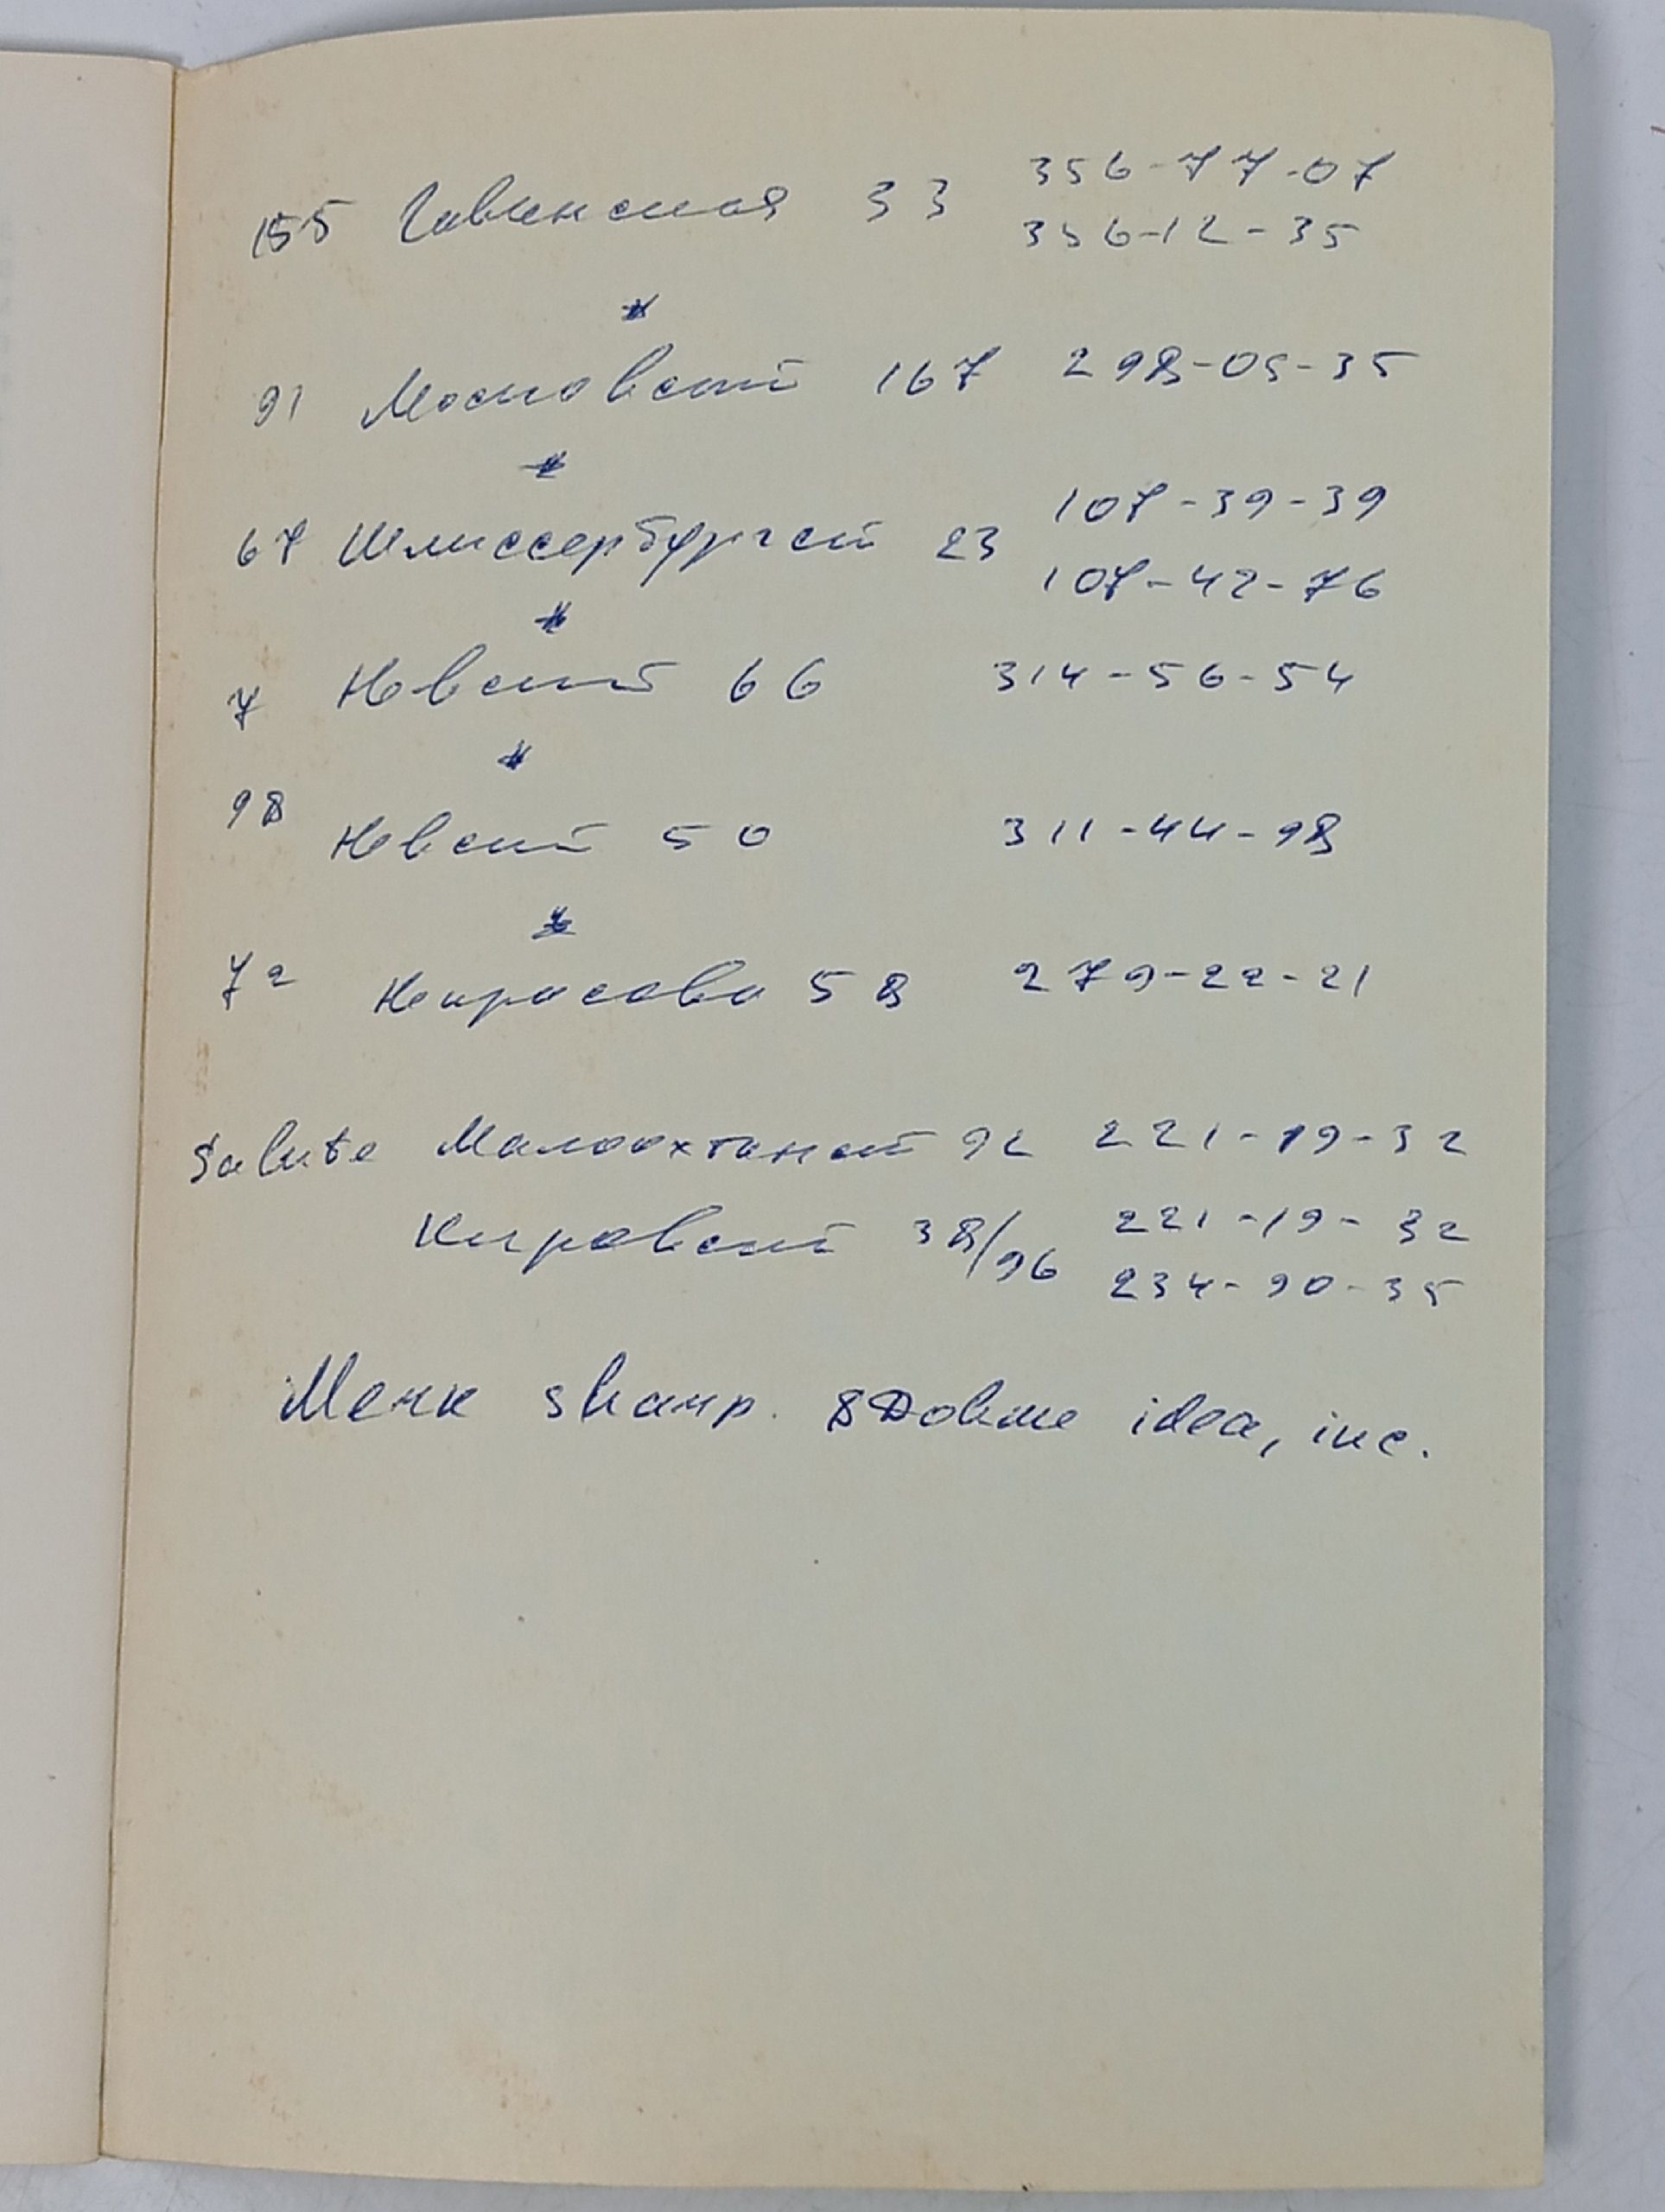 155 Гаванская 33 356-77-07
356-12-35
*
91 Московский 167 298-05-35
*
67 Шлиссербургск 23 107-39-39
107-42-76
*
7 Невский 66 314-56-54
*
98 Невский 50 311-44-98
*
72 Некрасова 58 279-22-21
Salute Малоохтинский 92 221-19-32
Кировский 38/96 221-19-32
234-90-35
Merk sharp. & Dohme idea, inc.